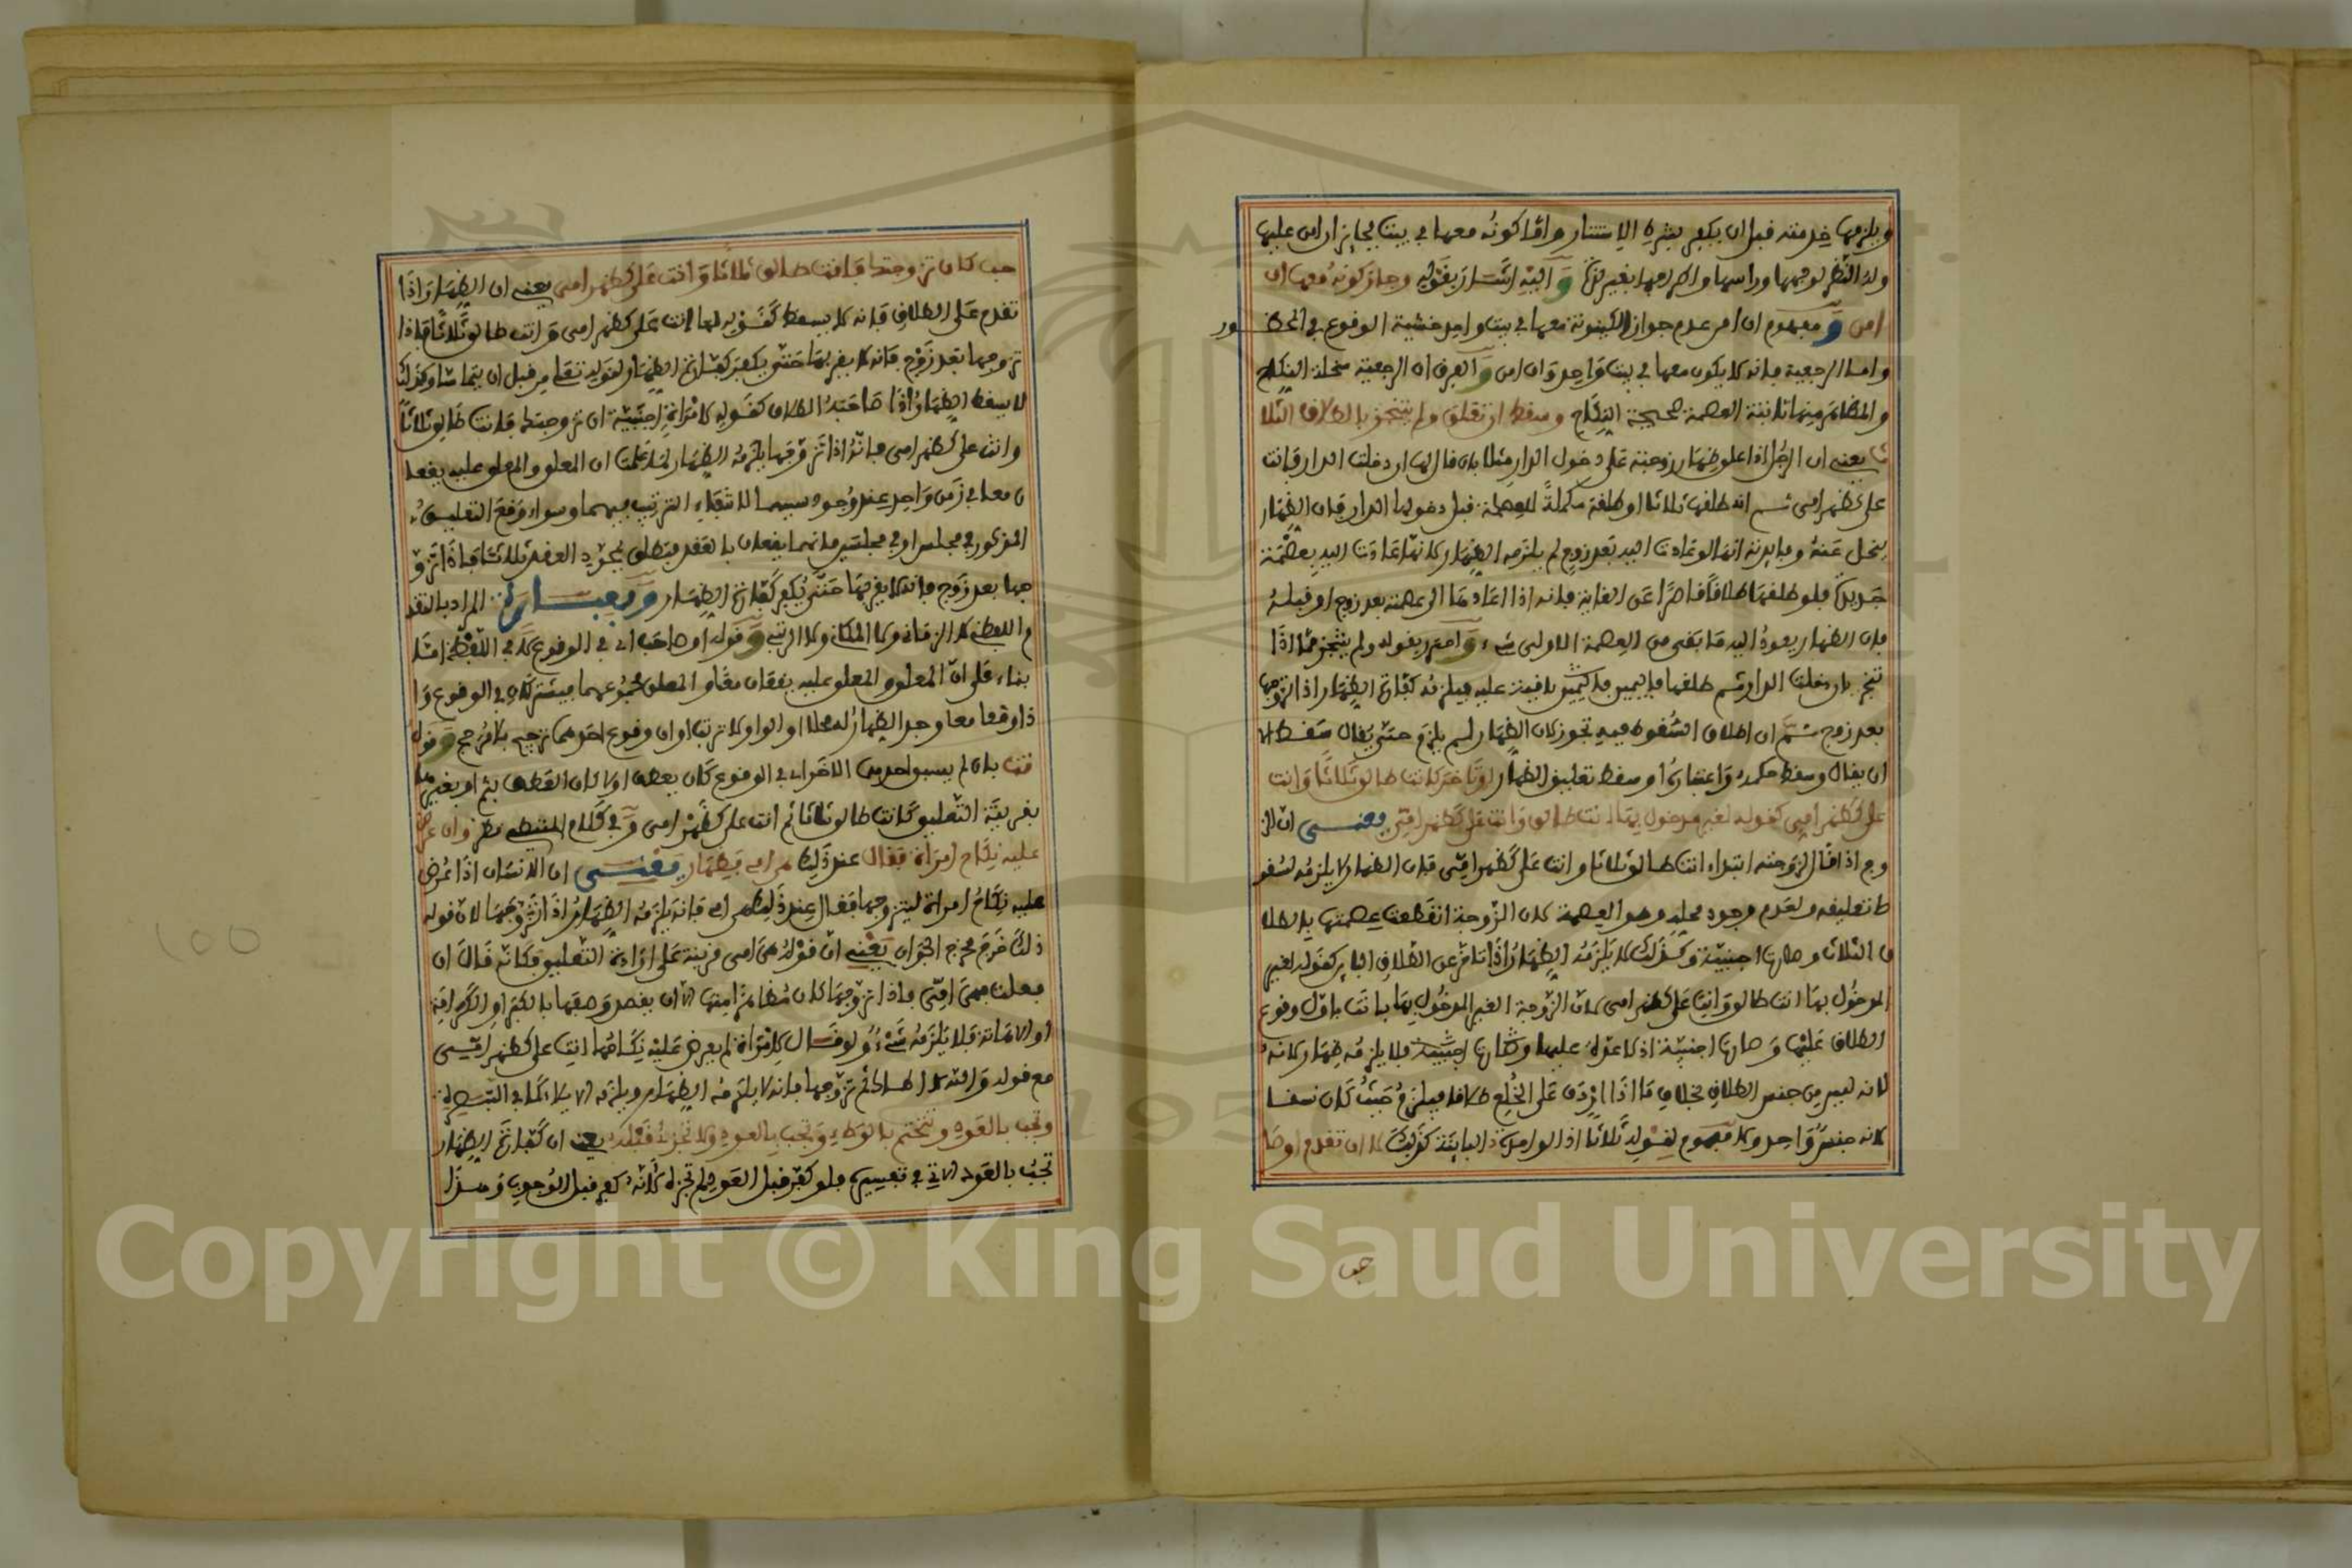 ويلزمها خدمته قبل ان يكفر بشرط الاستتار واما كونه معها في بيت فجايز ان امن عليها
وله النظر لوجهها وراسها واطرافها بغير لذة و اليه اشار بقوله وجاز كونه معها ان
امن و مفهوم ان امن عدم جواز الكينونة معها في بيت واحد خشية الوقوع في المحظور
واما الرجعية فانه لا يكون معها في بيت واحد وان امن و الفرق ان الرجعية منحلة النكاح
والمظاهر منها ثابتة العصمة صحيحة النكاح وسقط ان تعلق ولم يتنجز بالطلاق الثلا
ث يعني ان الرجل اذا علق ظهار زوجته على دخول الدار مثلا بان قال ان دخلت الدار فانت
علي كظهر امي ثم انه طلقها ثلاثا او طلقة مكملة للعصمة قبل دخولها الدار فان الظهار
ينحل عنه وفايدته انها لو عادت اليه بعد زوج لم يلزمه الظهار لانها عادت اليه بعصمة
جديدة فلو طلقها طلاقا قاصرا عن الغاية فانه اذا اعادها الى عصمته بعد زوج او قبله
فان الظهار يعود اليه ما بقي من العصمة الاولى شيء و احترز بقوله ولم يتنجز مما اذا
تنجز بان دخلت الدار ثم طلقها فيلزمه كفارة الظهار اذا تزوجها
بعد زوج ثم ان اطلاق السقوط فيه تجوز لان الظهار لم يلزم حتى يقال سقط الا
ان يقال وسقط حكمه واعتباره او سقط تعليق الظهار او تاخر كانت طالق ثلاثا وانت
علي كظهر امي كقوله لغير مدخول بها انت طالق وانت علي كظهر امي يعني ان الز
وج اذا قال لزوجته ابتداء انت طالق ثلاثا وانت علي كظهر امي فان الظهار لا يلزمه لسقو
ط تعليقه ولعدم وجود محله وهو العصمة لان الزوجة انقطعت عصمتها بالطلا
ق الثلاث وصارت اجنبية وكذلك لا يلزمه الظهار اذا تاخر عن الطلاق الباين كقوله لغير
المدخول بها انت طالق وانت علي كظهر امي لان الزوجة الغير المدخول بها بانت باول وقوع
الطلاق عليها وصارت اجنبية اذ لا عدة عليها فلا يلزمه ظهار
لانه ليس من جنس الطلاق بخلاف ما اذا اردف على الخلع طلاقا فيلزم حيث كان نسقا
لانه جنس واحد ولا مفهوم لقوله ثلاثا اذ الواحدة الباينة كذلك لا ان تقدم او صا
حب
حب كان تزوجتك فانت طالق ثلاثا وانت علي كظهر امي يعني ان الظهار اذا
تقدم على الطلاق فانه لا يسقط كقوله لها انت علي كظهر امي وانت طالق ثلاثا فاذا
تزوجها بعد زوج فانه لا يقربها حتى يكفر كفارة الظهار لقوله تعلى من قبل ان يتماسا وكذلك
لا يسقط الظهار اذا صاحبه الطلاق كقوله لامراة اجنبية ان تزوجتك فانت طالق ثلاثا
وانت علي كظهر امي فانه اذا تزوجها يلزمه الظهار لما علمت ان المعلق والمعلق عليه يقعا
ن معا في زمن واحد عند وجود سببهما لانتفاء الترتيب فيهما وسواء وقع التعليق
المذكور في مجلس او في مجلسين فانهما يقعان بالعقد فتطلق بمجرد العقد ثلاثا فاذا تزو
جها بعد زوج فانه لا يقربها حتى يكفر كفارة الظهار المراد بالتقد
م اللفظي لا الزماني ولا المكاني ولا الرتبي و قوله او صاحب اي في الوقوع لا في اللفظ
بناء على ان المعلق والمعلق عليه يقعان معا والمعلق مجموعهما فيشتركان في الوقوع وا
ذا وقعا معا وجد الظهار له محلا او الواو لا ترتب او ان وقوع احدهما ترجيح بلا مرجح و قوله
بان لم يسبق احدهما الاخر اي في الوقوع كان بعطف او لا كان العطف بثم او بغيرها
بقرينة التعليق كانت طالق ثلاثا ثم انت علي كظهر امي و في كلام نظر وان عرض
عليه نكاح امراة فقال عند ذلك هي امي فظهار يعني ان الانسان اذا عرض
عليه نكاح امراة ليتزوجها فقال عند ذلك هي امي فانه يلزمه الظهار اذا تزوجها لان قوله
ذلك خرج مخرج الجواب يعني ان قوله هي امي قرينة على ارادة التعليق فكانه قال ان
فعلت فهي امي فاذا تزوجها كان مظاهرا منها الا ان يقصد وصفها بالكبر او الكرامة
او الاهانة فلا يلزمه شيء ولو قال لامراة لم يعرض عليه نكاحها انت علي كظهر امي
مع قوله والله لا اطاك ثم تزوجها فانه لا يلزمه الظهار ويلزمه الايلاء
وتجب بالعود وتتحتم بالوطء وتجب بالعود ولا تجزئ قبله يعني ان كفارة الظهار
تجب بالعود الاتي في تفسيره فلو كفر قبل العود لم تجزه لانه كفر قبل الوجوب وهذا
100